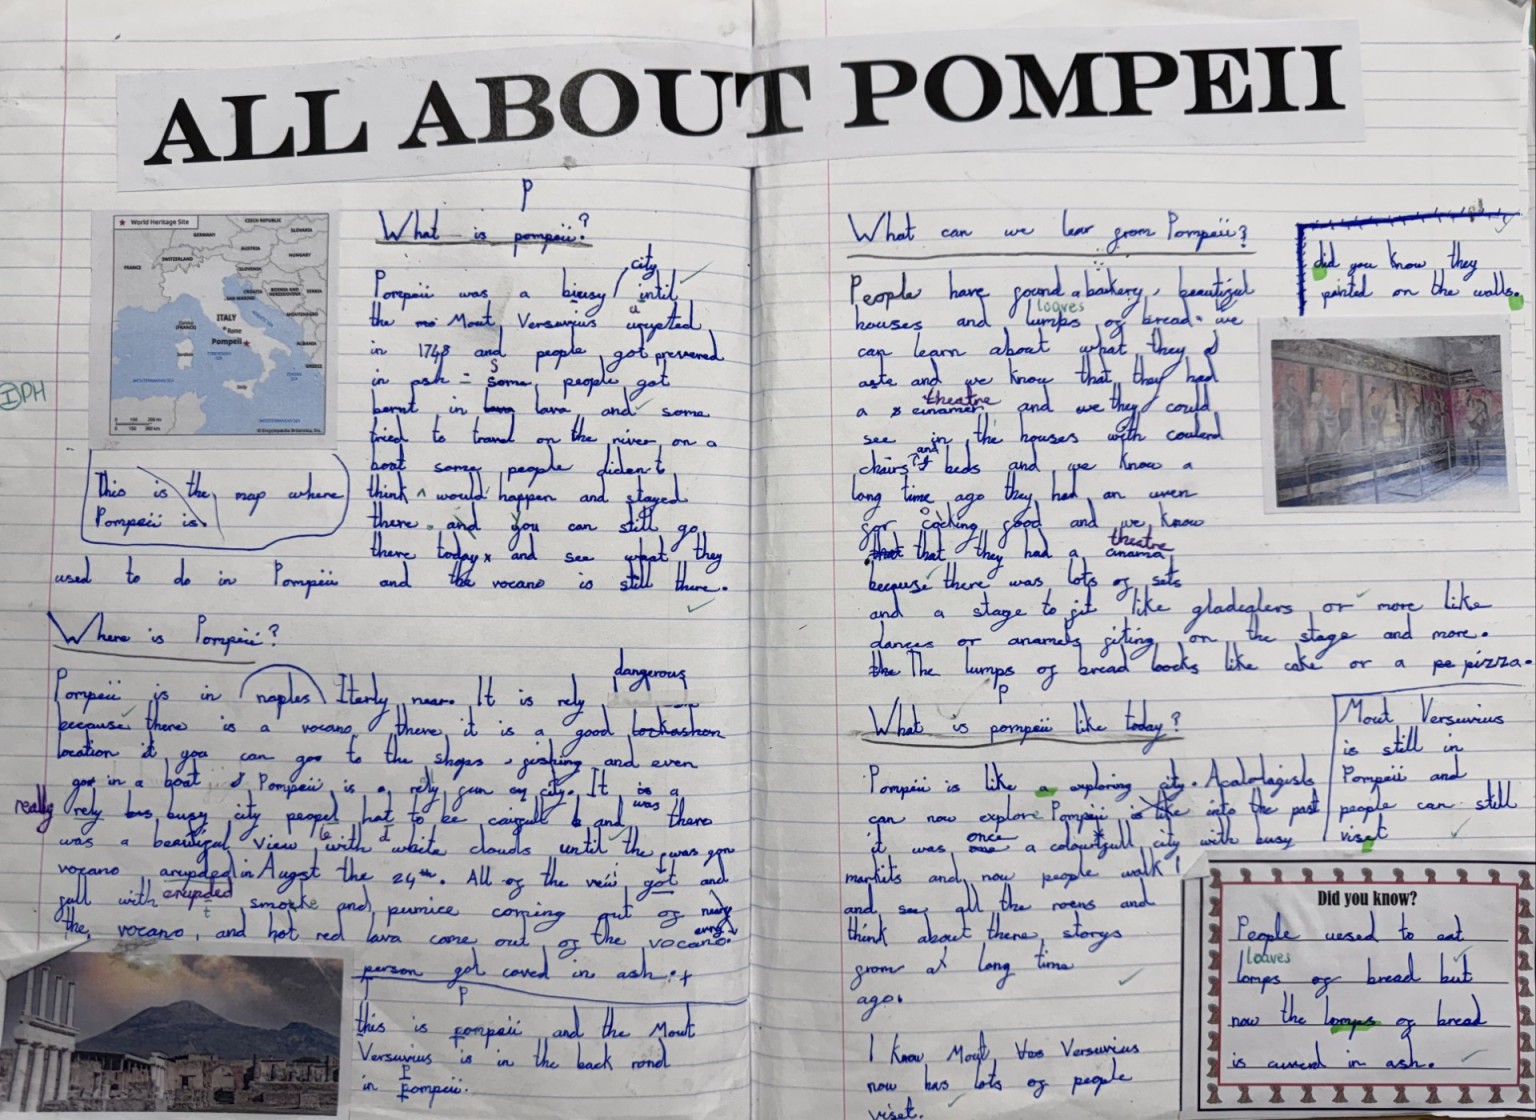 ALL ABOUT POMPEII
★ World Heritage Site
GERMANY
CZECH REPUBLIC
SLOVAKIA
AUSTRIA
FRANCE
SWITZERLAND
HUNGARY
SLOVENIA
CROATIA
SAN MARINO
ITALY
Rome
Pompeii ★
ALBANIA
GREECE
© Encyclopædia Britannica, Inc.
I PH
This is the map where
Pompeii is.
P
What is pompeii?
city
Pompeii was a biusy / until
the mo Mout Versuvius urupted
in 1748 and people got preverved
in psh = some people got
bernt in lava lava and some
tried to travel on the river on a
boat some people diden't
think ^ would happen and stayed
there. and you can still go
there today x and see what they
used to do in Pompeii and the vocano is still there.
Where is Pompeii?
dangerous
Pompeii is in naples Iterly near. It is rely
because there is a vocano, there it is a good lockashon
location it you can goo to the shops, fishing and even
got in a boat & Pompeii is a rely fun city. It is a
was
really rely bus busy city peopel hat to be cairfull b and there
was a beautifal view with white clouds until the was gon
vocano arupded in Augst the 24th. All of the veiw got and
full with erupded smoke and pumice coming out of
the vocano, and hot red lava come out of the vocano.
every
person got coved in ash.+
P
this is pompeii and the Mout
Versuvius is in the back rond
in Pompeii.
What can we lear from Pompeii?
People have found a bakery, beautiful
loaves
houses and lumps of bread. we
can learn about what they
aste and we know that they had
theatre
a cinamer and we they could
see in the houses with coulerd
and
chairs beds and we know a
long time ago they had an uven
for cocking food and we know
theatre
that that they had a cinama
because there was lots of sets
and a stage to fit like gladeglers or more like
dances or anamels fiting on the stage and more.
the The lumps of bread loocks like cake or a pe pizza.
did you know they
peinted on the walls.
P
What is pompeii like today?
Pompeii is like a exploring city. Acalologists
can now explore Pompeii is like into the past
once
it was one a colourfull city with busy
markits and now people walk
and see all the roens and
think about there storys
from a long time
ago.
I know Mout Ves Versuvius
now has lots of people
viset.
Mout Versuvius
is still in
Pompeii and
people can still
viset
Did you know?
People uesed to eat
loaves
lomps of bread but
now the lomps of bread
is cuverd in ash.